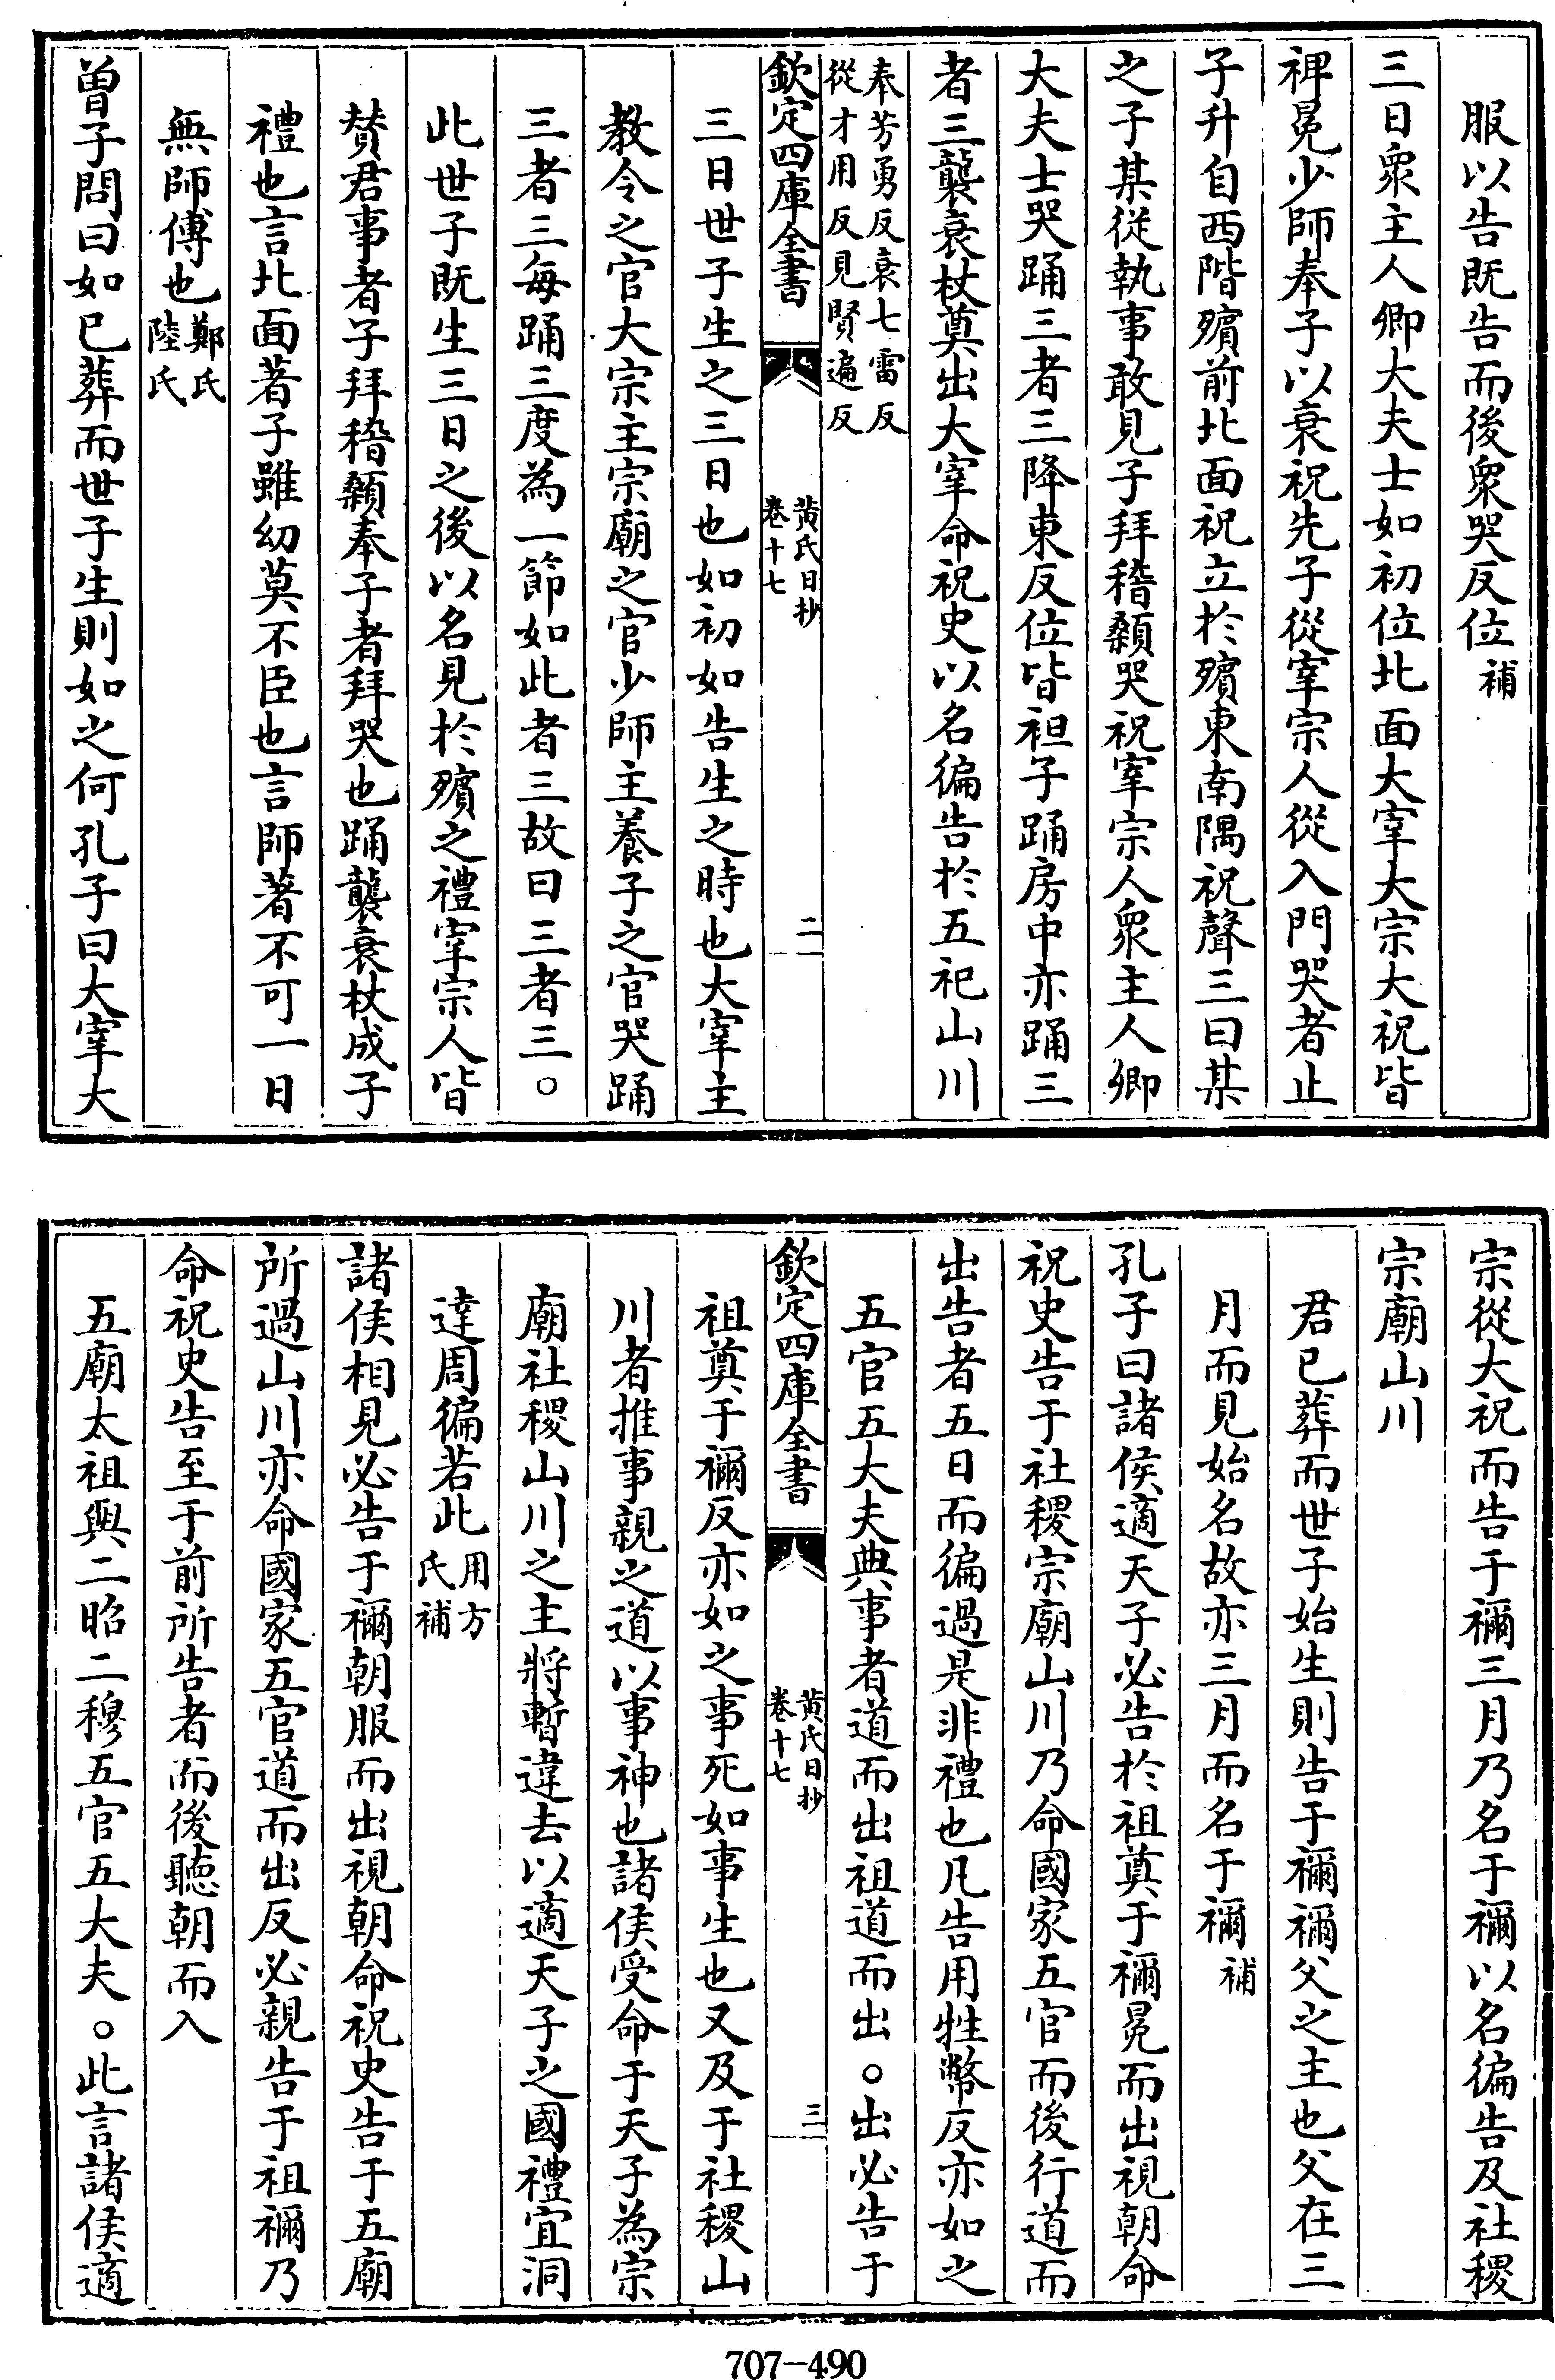 服以告既告而後衆哭反位補
三日衆主人卿大夫士如初位北面大宰大宗大祝皆
裨冕少師奉子以衰祝先子從宰宗人從入門哭者止
子升自西階殯前北面祝立於殯東南隅祝聲三曰某
之子某從執事敢見子拜稽顙哭祝宰宗人衆主人卿
大夫士哭踊三者三降東反位皆袒子踊房中亦踊三
者三襲衰杖奠出大宰命祝史以名徧告於五祀山川
奉芳勇反衰七雷反
從才用反見賢遍反
欽定四庫全書
黃氏日抄
卷十七
二
三日世子生之三日也如初如告生之時也大宰主
教令之官大宗主宗廟之官少師主養子之官哭踊
三者三每踊三度為一節如此者三故曰三者三。
此世子既生三日之後以名見於殯之禮宰宗人皆
贊君事者子拜稽顙奉子者拜哭也踊襲衰杖成子
禮也言北面著子雖幼莫不臣也言師著不可一日
無師傅也鄭氏
陸氏
曾子問曰如已葬而世子生則如之何孔子曰大宰大
宗從大祝而告于禰三月乃名于禰以名徧告及社稷
宗廟山川
君已葬而世子始生則告于禰禰父之主也父在三
月而見始名故亦三月而名于禰補
孔子曰諸侯適天子必告於祖奠于禰冕而出視朝命
祝史告于社稷宗廟山川乃命國家五官而後行道而
出告者五日而徧過是非禮也凡告用牲幣反亦如之
五官五大夫典事者道而出祖道而出。出必告于
欽定四庫全書
黃氏日抄
卷十七
三
祖奠于禰反亦如之事死如事生也又及于社稷山
川者推事親之道以事神也諸侯受命于天子為宗
廟社稷山川之主將暫違去以適天子之國禮宜洞
達周徧若此用方
氏補
諸侯相見必告于禰朝服而出視朝命祝史告于五廟
所過山川亦命國家五官道而出反必親告于祖禰乃
命祝史告至于前所告者而後聽朝而入
五廟太祖與二昭二穆五官五大夫。此言諸侯適
707-490